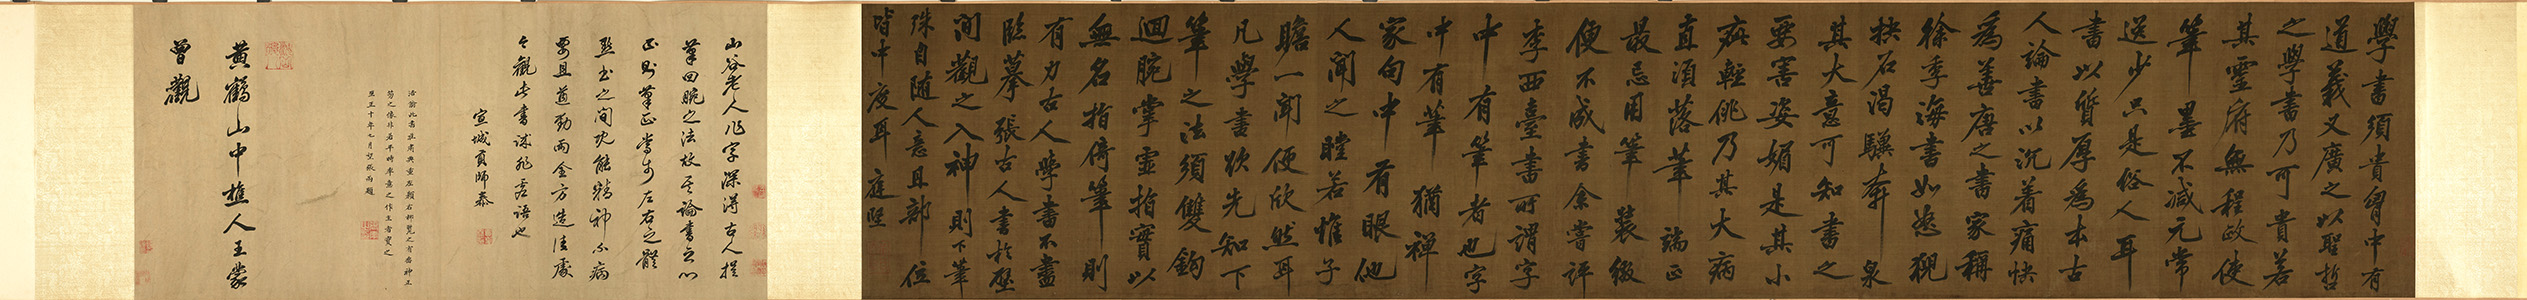 學書須貴胷中有
道義又廣之以聖哲
之學書乃可貴若
其靈府無程政使
筆墨不減元常
逸少只是俗人耳
書以質厚爲本古
人論書以沉着痛快
爲善唐之書家稱
徐季海書如怒猊
抉石渴驥奔泉
其大意可知書之
要害姿媚是其小
疵輕佻乃其大病
直須落筆端正
最忌用筆裝綴
便不成書余嘗評
李西臺書所謂字
中有筆者也字
中有筆猶禪
家句中有眼他
人聞之瞠若惟子
瞻一聞便欣然耳
凡學書欲先知下
筆之法須雙鉤
迴腕掌虛指實以
無名指倚筆則
有力古人學書不盡
臨摹張古人書於壁
間觀之入神則下筆
時自隨人意且部位
皆中度耳 庭堅
山谷老人作字深得古人捉
筆回腕之法故其論書云心
正則筆正嘗與左右之體
點畫之間耽能精神不病
要且遒勁兩全方造法度
今觀此書誠非虛語也
宣城貢師泰
至正十年七月望張雨題
黃鶴山中樵人王蒙
曾觀